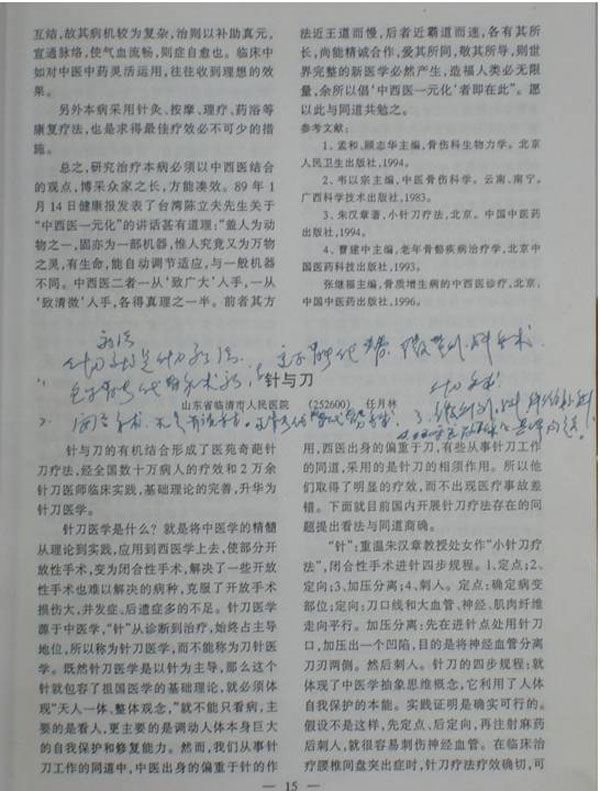 互结，故其病机较为复杂，治则以补助真元，
宣通脉络，使气血流畅，则症自愈也。临床中
如对中医中药灵活运用，往往收到理想的效
果。
另外本病采用针灸、按摩、理疗、药浴等
康复疗法，也是求得最佳疗效必不可少的措
施。
总之，研究治疗本病必须以中西医结合
的观点，博采众家之长，方能凑效。89 年 1
月 14 日健康报发表了台湾陈立夫先生关于
“中西医一元化”的讲话甚有道理：“盖人为动
物之一，固亦为一部机器，惟人究竟又为万物
之灵，有生命，能自动调节适应，与一般机器
不同。中西医二者一从‘致广大’人手，一从
‘致清微’人手，各得真理之一半。前者其方
法近王道而慢，后者近霸道而速，各有其所
长，尚能精诚合作，爱其所同，敬其所导，则世
界完整的新医学必然产生，造福人类必无限
量，余所以倡‘中西医一元化’者即在此”。愿
以此与同道共勉之。
参考文献：
1、孟和、顾志华主编，骨伤科生物力学。北京
人民卫生出版社，1994。
2、韦以宗主编，中医骨伤科学。云南、南宁。
广西科学技术出版社，1983。
3、朱汉章著，小针刀疗法，北京。中国中医药
出版社，1994。
4、曹建中主编，老年骨骼疾病治疗学，北京中
国医药科技出版社，1993。
张继福主编，骨质增生病的中西医诊疗，北京，
中国中医药出版社，1996。
针与刀
山东省临清市人民医院 （252600） 任月林
针与刀的有机结合形成了医苑奇葩针
刀疗法，经全国数十万病人的疗效和 2 万余
针刀医师临床实践，基础理论的完善，升华为
针刀医学。
针刀医学是什么？就是将中医学的精髓
从理论到实践，应用到西医学上去，使部分开
放性手术，变为闭合性手术，解决了一些开放
性手术也难以解决的病种，克服了开放手术
损伤大，并发症、后遗症多的不足。针刀医学
源于中医学，“针”从诊断到治疗，始终占主导
地位，所以称为针刀医学，而不能称为刀针医
学。既然针刀医学是以针为主导，那么这个
针就包容了祖国医学的基础理论，就必须体
现“天人一体，整体观念，”就不能只看病，主
要的是看人，更主要的是调动人体本身巨大
的自我保护和修复能力。然而，我们从事针
刀工作的同道中，中医出身的偏重于针的作
用，西医出身的偏重于刀，有些从事针刀工作
的同道，采用的是针刀的相须作用。所以他
们取得了明显的疗效，而不出现医疗事故差
错。下面就目前国内开展针刀疗法存在的问
题提出看法与同道商确。
“针”：重温朱汉章教授处女作“小针刀疗
法”，闭合性手术进针四步规程。1、定点；2、
定向；3、加压分离；4、刺人。定点：确定病变
部位；定向：刀口线和大血管、神经、肌肉纤维
走向平行。加压分离：先在进针点处用针刀
口，加压出一个凹陷，目的是将神经血管分离
刀刃两侧。然后刺人。针刀的四步规程：就
体现了中医学抽象思维概念，它利用了人体
自我保护的本能。实践证明是确实可行的。
假设不是这样，先定点、后定向，再注射麻药
后刺人，就很容易刺伤神经血管。在临床治
疗腰椎间盘突出症时，针刀疗法疗效确切，可
— 15 —